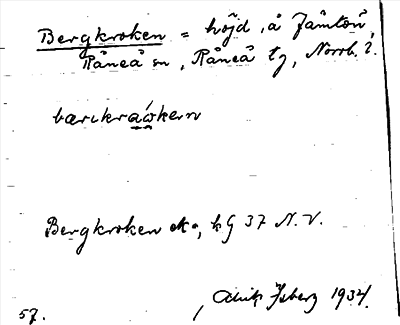 Bergkroken = höjd, å Jämtön,
Råneå sn, Råneå tg, Norrb. l.
bærıkraókern
Bergkroken ek, kG 37 N.V.
57. Isberg 1934.